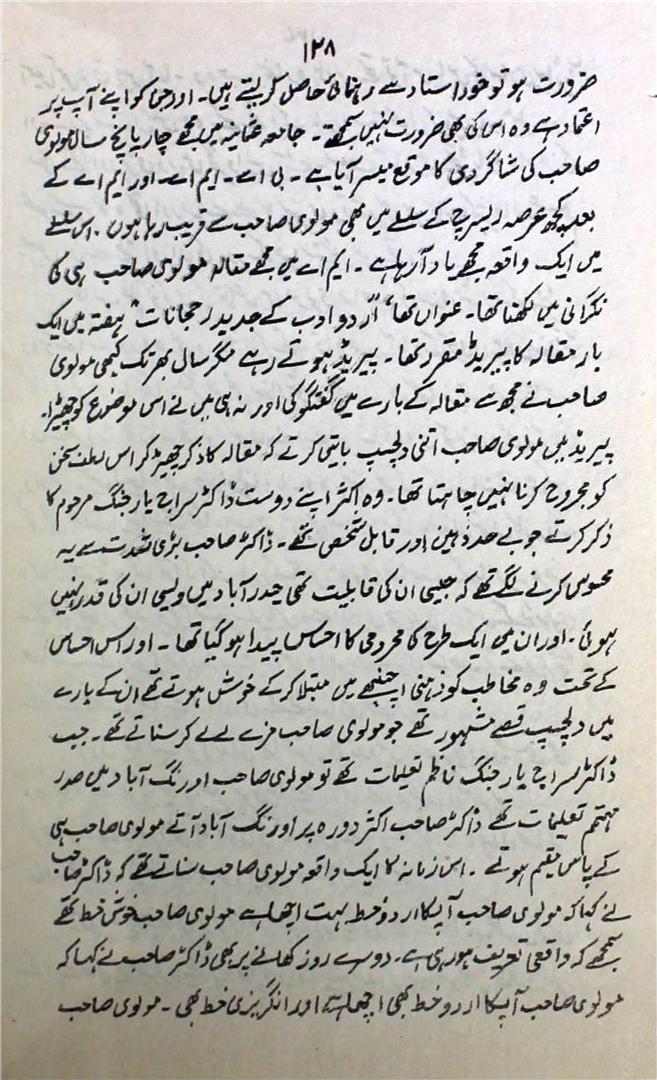 ۱۲۸
ضرورت ہو تو خود استاد سے رہنمائی حاصل کر لیتے ہیں۔ اور جن کو اپنے آپ پر
اعتماد ہے وہ اس کی بھی ضرورت نہیں سمجھتے۔ جامعہ عثمانیہ میں مجھے چار پانچ سال مولوی
صاحب کی شاگردی کا موقع میسر آیا ہے۔ بی اے۔ ایم اے۔ اور ایم اے کے
بعد کچھ عرصہ ریسرچ کے سلسلے میں بھی مولوی صاحب سے قریب رہا ہوں۔ اس سلسلے
میں ایک واقعہ مجھے یاد آ رہا ہے۔ ایم اے میں مجھے مقالہ مولوی صاحب ہی کی
نگرانی میں لکھنا تھا۔ عنوان تھا "اردو ادب کے جدید رجحانات" ہفتہ میں ایک
بار مقالہ کا پیریڈ مقرر تھا۔ پیریڈ ہوتے رہے مگر سال بھر تک کبھی مولوی
صاحب نے مجھ سے مقالہ کے بارے میں گفتگو کی اور نہ ہی میں نے اس موضوع کو چھیڑا۔
پیریڈ میں مولوی صاحب اتنی دلچسپ باتیں کرتے کہ مقالہ کا ذکر چھیڑ کر اس لطف سخن
کو مجروح کرنا نہیں چاہتا تھا۔ وہ اکثر اپنے دوست ڈاکٹر سراج یار جنگ مرحوم کا
ذکر کرتے جو بے حد ذہین اور قابل شخص تھے۔ ڈاکٹر صاحب بڑی شدت سے یہ
محسوس کرنے لگے تھے کہ جیسی ان کی قابلیت تھی حیدرآباد میں ویسی ان کی قدر نہیں
ہوئی۔ اور ان میں ایک طرح کی محرومی کا احساس پیدا ہو گیا تھا۔ اور اس احساس
کے تحت وہ مخاطب کو ذہنی اچنبھے میں مبتلا کر کے خوش ہوتے تھے ان کے بارے
میں دلچسپ قصے مشہور تھے جو مولوی صاحب مزے لے لے کر سناتے تھے۔ جب
ڈاکٹر سراج یار جنگ ناظم تعلیمات تھے تو مولوی صاحب اورنگ آباد میں صدر
مہتمم تعلیمات تھے ڈاکٹر صاحب اکثر دورہ پر اورنگ آباد آتے مولوی صاحب ہی
کے پاس مقیم ہوتے۔ اس زمانہ کا ایک واقعہ مولوی صاحب سناتے تھے کہ ڈاکٹر صاحب
نے کہا کہ مولوی صاحب آپکا اردو خط بہت اچھا ہے مولوی صاحب خوش خط تھے
سمجھے کہ واقعی تعریف ہو رہی ہے۔ دوسرے روز کھانے پر بھی ڈاکٹر صاحب نے کہا کہ
مولوی صاحب آپکا اردو خط بھی اچھا ہے اور انگریزی خط بھی۔ مولوی صاحب